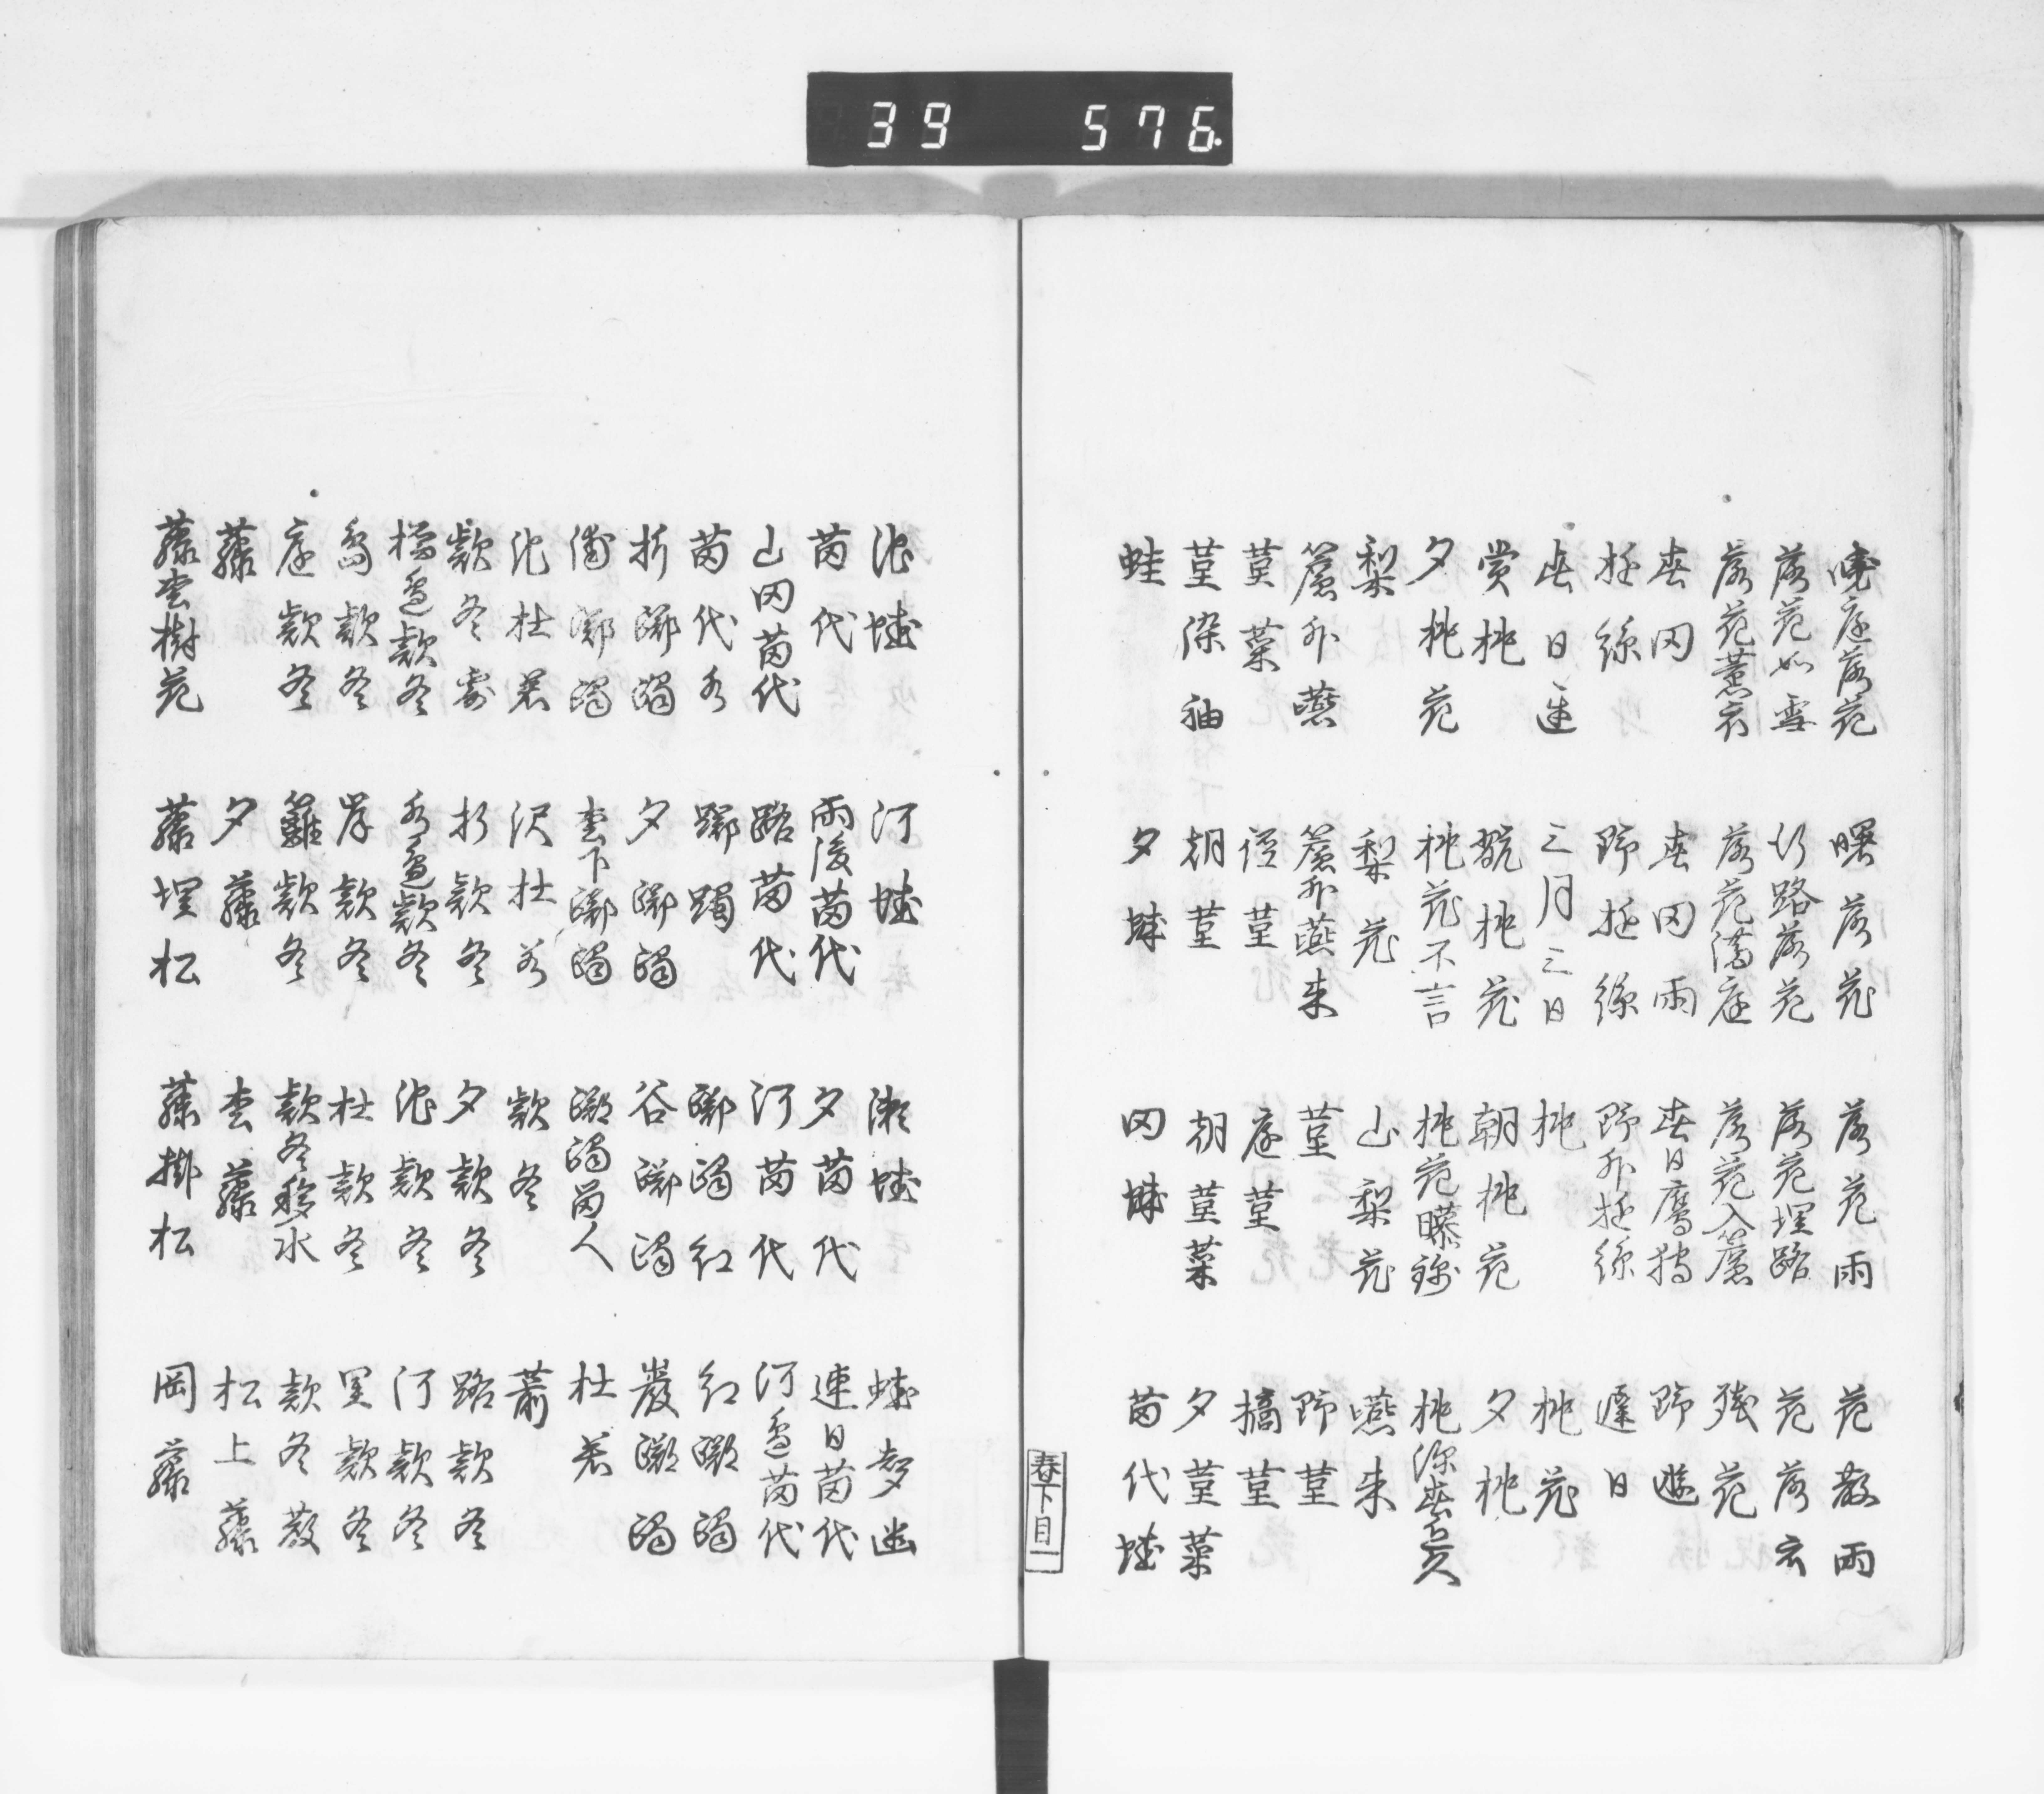 39 576.
暁庭落花 曙落花 落花雨 花散雨
落花如雪 行路落花 落花埋路 花落衣
落花薫衣 落花満庭 落花入簾 残花
春田 春田雨 春日鷹狩 野遊
遊絲 野遊絲 野外遊絲 遅日
春日遅 三月三日 桃 桃花
賞桃 翫桃花 朝桃花 夕桃
夕桃花 桃花不言 桃花曝錦 桃源春
梨 梨花 山梨花 燕来
簾外燕 簾外燕来 菫 野菫
菫菜 径菫 庭菫 摘菫
菫染袖 朝菫 朝菫菜 夕菫菜
蛙 夕蛙 田蛙 苗代蛙
春下目一
池蛙 河蛙 瀬蛙 蛙声幽
苗代 雨後苗代 夕苗代 連日苗代
山田苗代 路苗代 河苗代 河辺苗代
苗代水 躑躅 躑躅紅 紅躑躅
折躑躅 夕躑躅 谷躑躅 巌躑躅
浦躑躅 下躑躅 躑躅留人 杜若
池杜若 沢杜若 款冬
款冬露 折款冬 夕款冬 路款冬
橋辺款冬 水辺款冬 池款冬 河款冬
島款冬 岸款冬 杜款冬 里款冬
庭款冬 籬款冬 款冬移水 款冬散
藤 夕藤 藤 松上藤
藤 樹花 藤埋松 藤掛松 岡藤